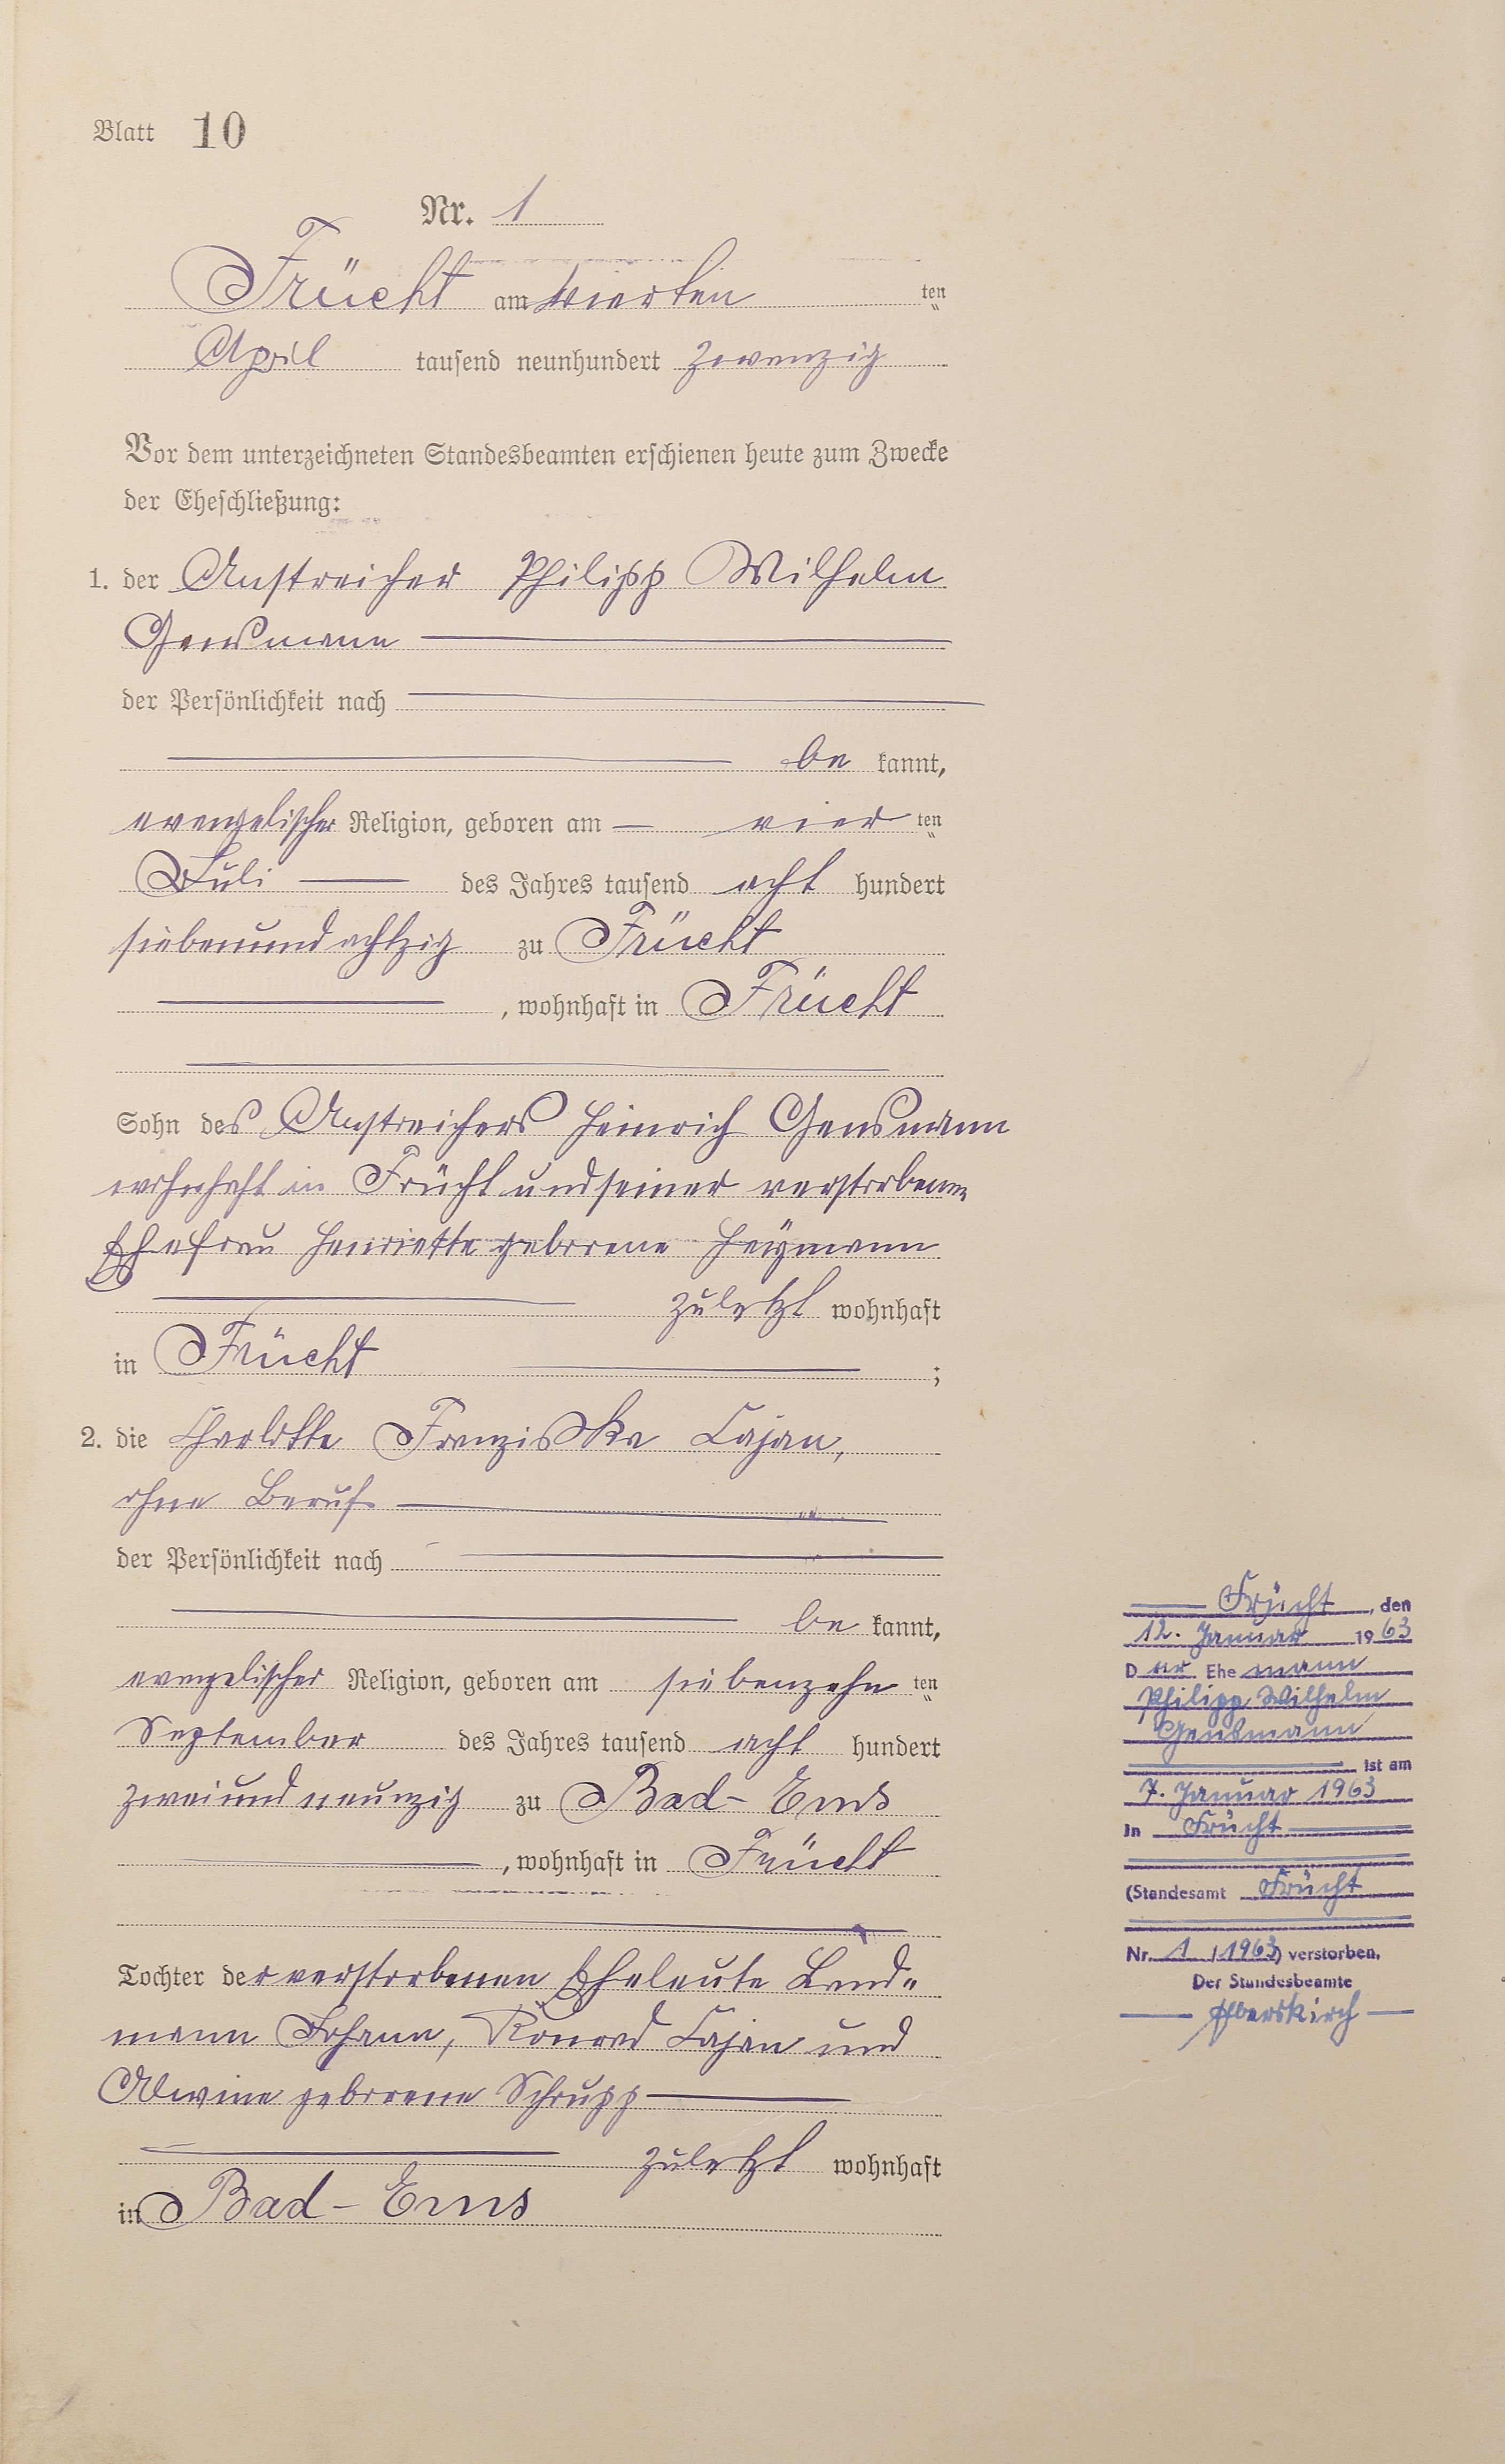 Blatt 10
Nr. 1
Frücht am vierten ten
April tausend neunhundert zwanzig
Vor dem unterzeichneten Standesbeamten erschienen heute zum Zwecke
der Eheschließung:
1. der Anstreicher Philipp Wilhelm
Gensmann
der Persönlichkeit nach
be kannt,
evangelischer Religion, geboren am vier ten
Juli des Jahres tausend acht hundert
siebenundachtzig zu Frücht
, wohnhaft in Frücht
Sohn des Anstreichers Heinrich Gensmann
wohnhaft in Frücht und seiner verstorbenen
Ehefrau Henriette geborene Heymann
zuletzt wohnhaft
in Frücht ;
2. die Charlotte Franziska Cajan,
ohne Beruf
der Persönlichkeit nach
be kannt,
evangelischer Religion, geboren am siebenzehn ten
September des Jahres tausend acht hundert
zweiundneunzig zu Bad-Ems
, wohnhaft in Frücht
Tochter der verstorbenen Eheleute Land„
mann Johann, Konrad Cajan und
Alwine geborene Schrupp
zuletzt wohnhaft
in Bad-Ems
Frücht, den
12. Januar 1963
Der Ehemann
Philipp Wilhelm
Gensmann
ist am
7. Januar 1963
in Frücht
(Standesamt Frücht
Nr. 1 / 1963) verstorben.
Der Standesbeamte